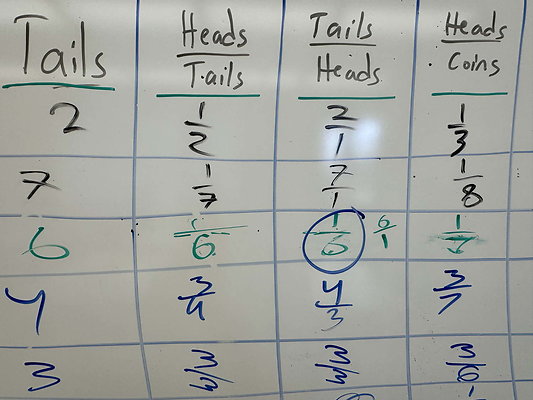 Tails Heads/Tails Tails/Heads Heads/Coins
2 1/2 2/1 1/3
7 1/7 7/1 1/8
6 1/6 1/6 6/1 1/7
4 3/4 4/3 3/7
3 3/3 3/3 3/6